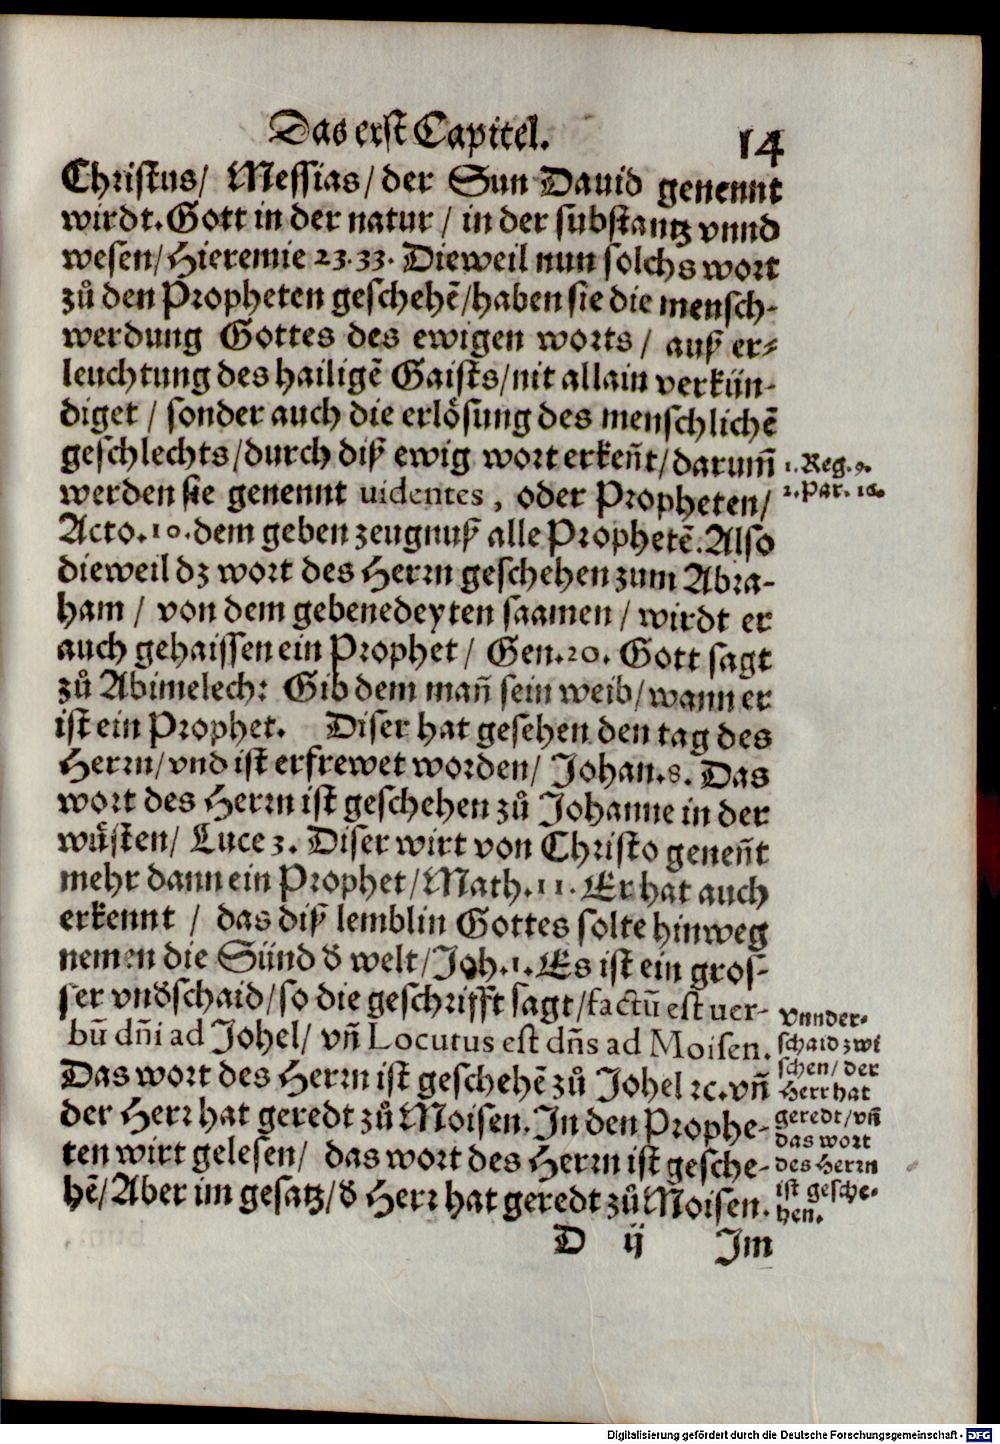 Das erst Capitel. 14
Christus/ Messias/ der Sun Dauid genennt
wirdt. Gott in der natur/ in der substantz vnnd
wesen/ Hieremie 23. 33. Dieweil nun solchs wort
zů den Propheten geschehẽ/ haben sie die mensch-
werdung Gottes des ewigen worts/ auß er-
leuchtung des hailigẽ Gaists/ nit allain verkün-
diget/ sonder auch die erlösung des menschlichẽ
geschlechts/ durch diß ewig wort erkeñt/ darum̃
werden sie genennt uidentes, oder Propheten/
Acto. 10. dem geben zeugnuß alle Prophetẽ. Also
dieweil dz wort des Herrn geschehen zum Abra-
ham/ von dem gebenedeyten saamen/ wirdt er
auch gehaissen ein Prophet/ Gen. 20. Gott sagt
zů Abimelech: Gib dem mañ sein weib/ wann er
ist ein Prophet. Diser hat gesehen den tag des
Herrn/ vnd ist erfrewet worden/ Johan. 8. Das
wort des Herrn ist geschehen zů Johanne in der
wůsten/ Luce 3. Diser wirt von Christo geneñt
mehr dann ein Prophet/ Math. 11. Er hat auch
erkennt/ das diß lemblin Gottes solte hinweg
nemen die Sünd d' welt/ Joh. 1. Es ist ein gros-
ser vnd'schaid/ so die geschrifft sagt/ factũ est uer-
bũ dñi ad Johel/ vñ Locutus est dñs ad Moisen.
Das wort des Herrn ist geschehẽ zů Johel ꝛc. vñ
der Herr hat geredt zů Moisen. In den Prophe-
ten wirt gelesen/ das wort des Herrn ist gesche-
hẽ/ Aber im gesatz/ d' Herr hat geredt zů Moisen.
D ij Im
1. Reg. 9.
1. Par. 16.
Vnnder-
schaid zwi
schen/ der
Herr hat
geredt/ vñ
das wort
des Herrn
ist gesche-
hen.
Digitalisierung gefördert durch die Deutsche Forschungsgemeinschaft - DFG